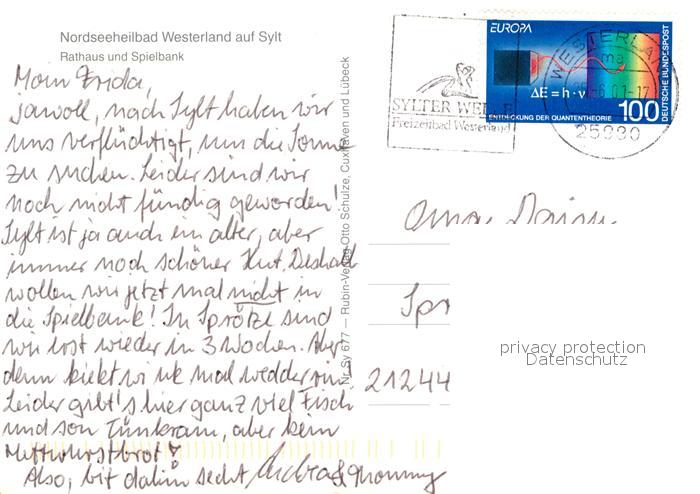 Nordseeheilbad Westerland auf Sylt
Rathaus und Spielbank
Moin Frida,
jawoll, nach Sylt haben wir
uns verflüchtigt, um die Sonne
zu suchen. Leider sind wir
noch nicht fündig geworden!
Sylt ist ja auch ein alter, aber
immer noch schöner Hut. Deshalb
wollen wir jetzt mal nicht in
die Spielbank! In Sprötze sind
wir erst wieder in 3 Wochen. Aber
denn kiekt wi mal wedder rin!
Leider gibt's hier ganz viel Fisch
und son Tünkram, aber kein
Mettwurstbrot?
Also, bit dahin secht
Nr. Sy 677 — Rubin-Verlag Otto Schulze, Cuxhaven und Lübeck
SYLTER WELLE
Freizeitbad Westerland
EUROPA
ΔE = h · ν
100
DEUTSCHE BUNDESPOST
ENTDECKUNG DER QUANTENTHEORIE
WESTERLAND
25980
Spr
21244
privacy protection
Datenschutz